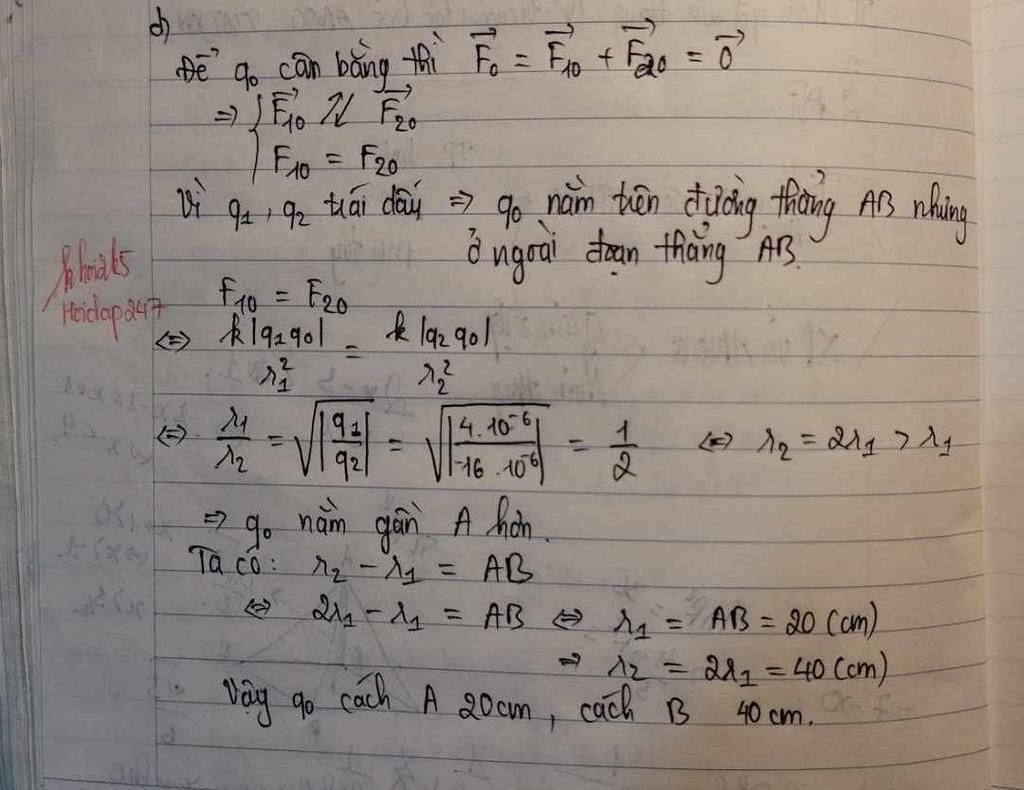 d)
Để q₀ cân bằng thì F₀⃗ = F₁₀⃗ + F₂₀⃗ = 0⃗
⇒ { F₁₀⃗ ⇅ F₂₀⃗
F₁₀ = F₂₀
Vì q₁, q₂ trái dấu ⇒ q₀ nằm trên đường thẳng AB nhưng
ở ngoài đoạn thẳng AB.
khoia25
Hoidap247
F₁₀ = F₂₀
⇔ k|q₁q₀| / r₁² = k|q₂q₀| / r₂²
⇔ r₁/r₂ = √|q₁/q₂| = √|4.10⁻⁶ / -16.10⁻⁶| = 1/2 ⇔ r₂ = 2r₁ > r₁
⇒ q₀ nằm gần A hơn.
Ta có: r₂ - r₁ = AB
⇔ 2r₁ - r₁ = AB ⇔ r₁ = AB = 20 (cm)
⇒ r₂ = 2r₁ = 40 (cm)
Vậy q₀ cách A 20cm, cách B 40 cm.